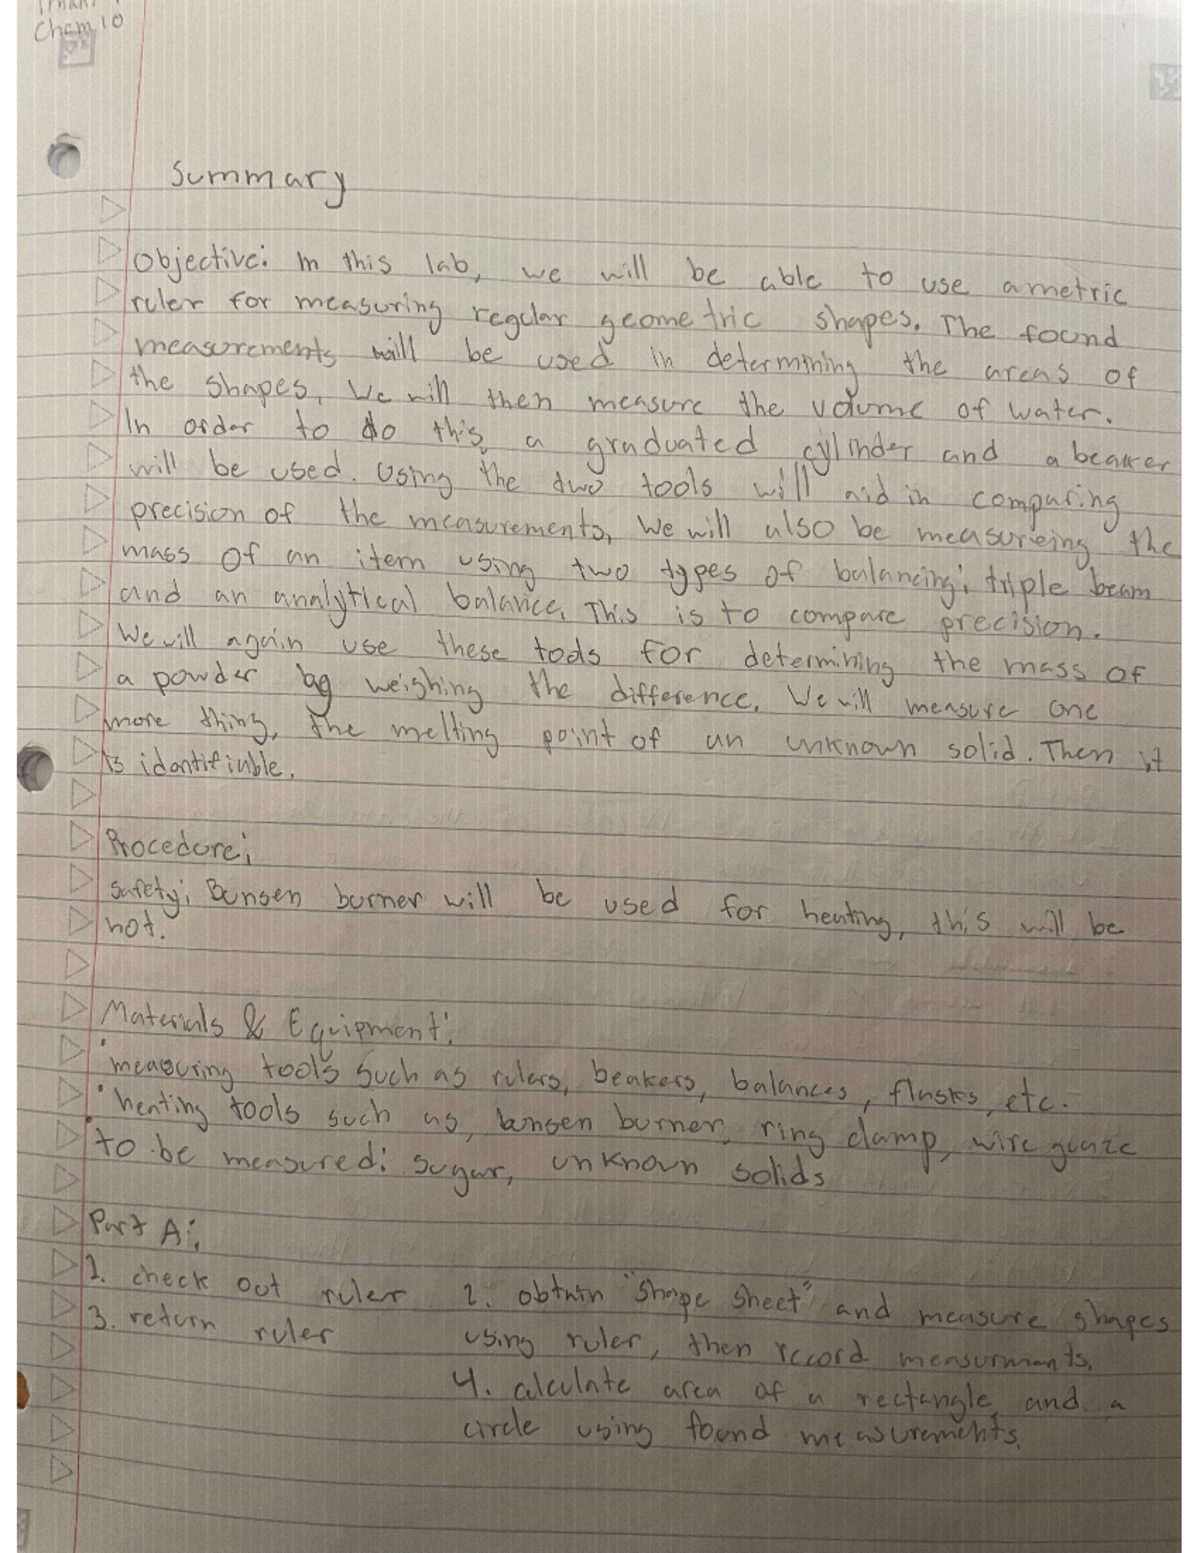 Chem 10
Summary
Objective: In this lab, we will be able to use a metric
ruler for measuring regular geometric shapes. The found
measurements will be used in determining the areas of
the shapes. We will then measure the volume of water.
In order to do this, a graduated cylinder and a beaker
will be used. Using the two tools will aid in comparing
precision of the measurements, We will also be measureing the
mass of an item using two types of balancing; triple beam
and an analytical balance. This is to compare precision.
We will again use these tools for determining the mass of
a powder by weighing the difference. We will measure one
more thing, the melting point of an unknown solid. Then it
is identifiable.
Procedure:
Safety: Bunsen burner will be used for heating, this will be
hot.
Materials & Equipment:
• measuring tools such as rulers, beakers, balances, flasks, etc.
• heating tools such as, bunsen burner, ring clamp, wire guaze
• to be measured: sugar, unknown solids
Part A:
1. check out ruler 2. obtain "shape sheet" and measure shapes
3. return ruler using ruler, then record measurments.
4. calculate area of a rectangle and a
circle using found measurements.